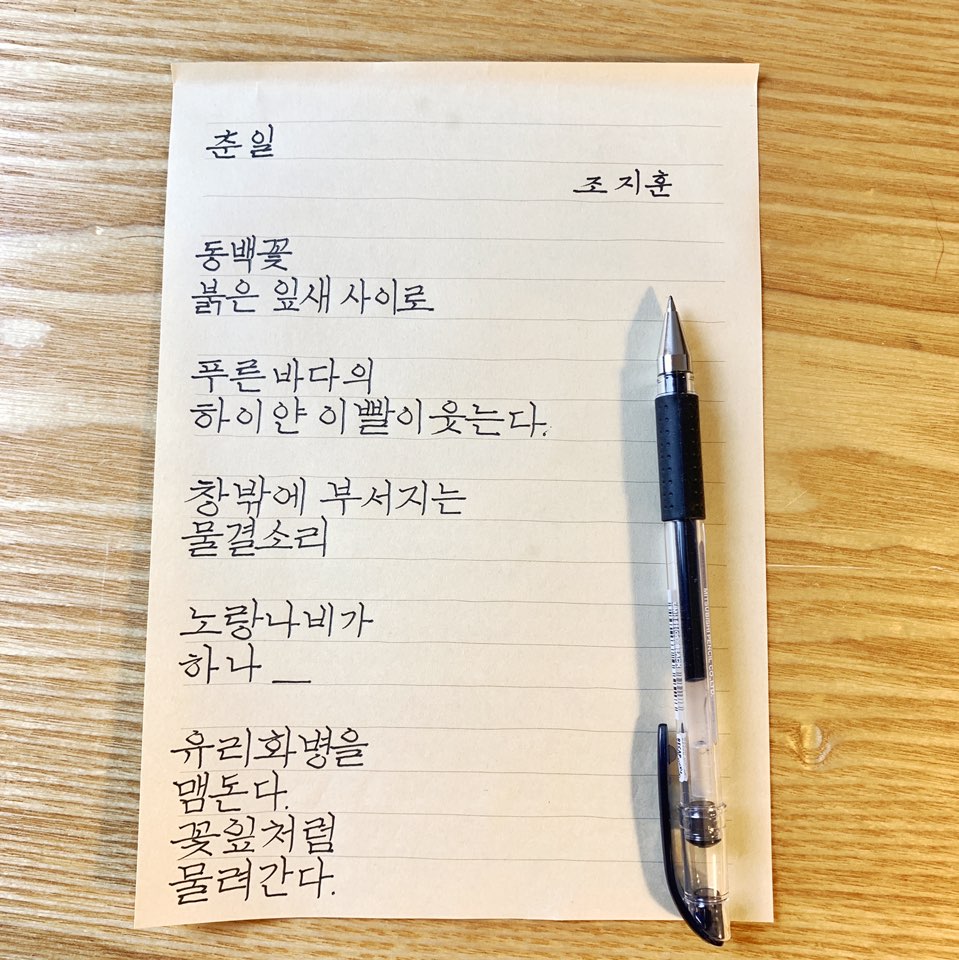 춘일
조지훈
동백꽃
붉은 잎새 사이로
푸른 바다의
하이얀 이빨이 웃는다.
창밖에 부서지는
물결소리
노랑나비가
하나 _
유리화병을
맴돈다.
꽃잎처럼
물려간다.
MITSUBISHI PENCIL CO., LTD